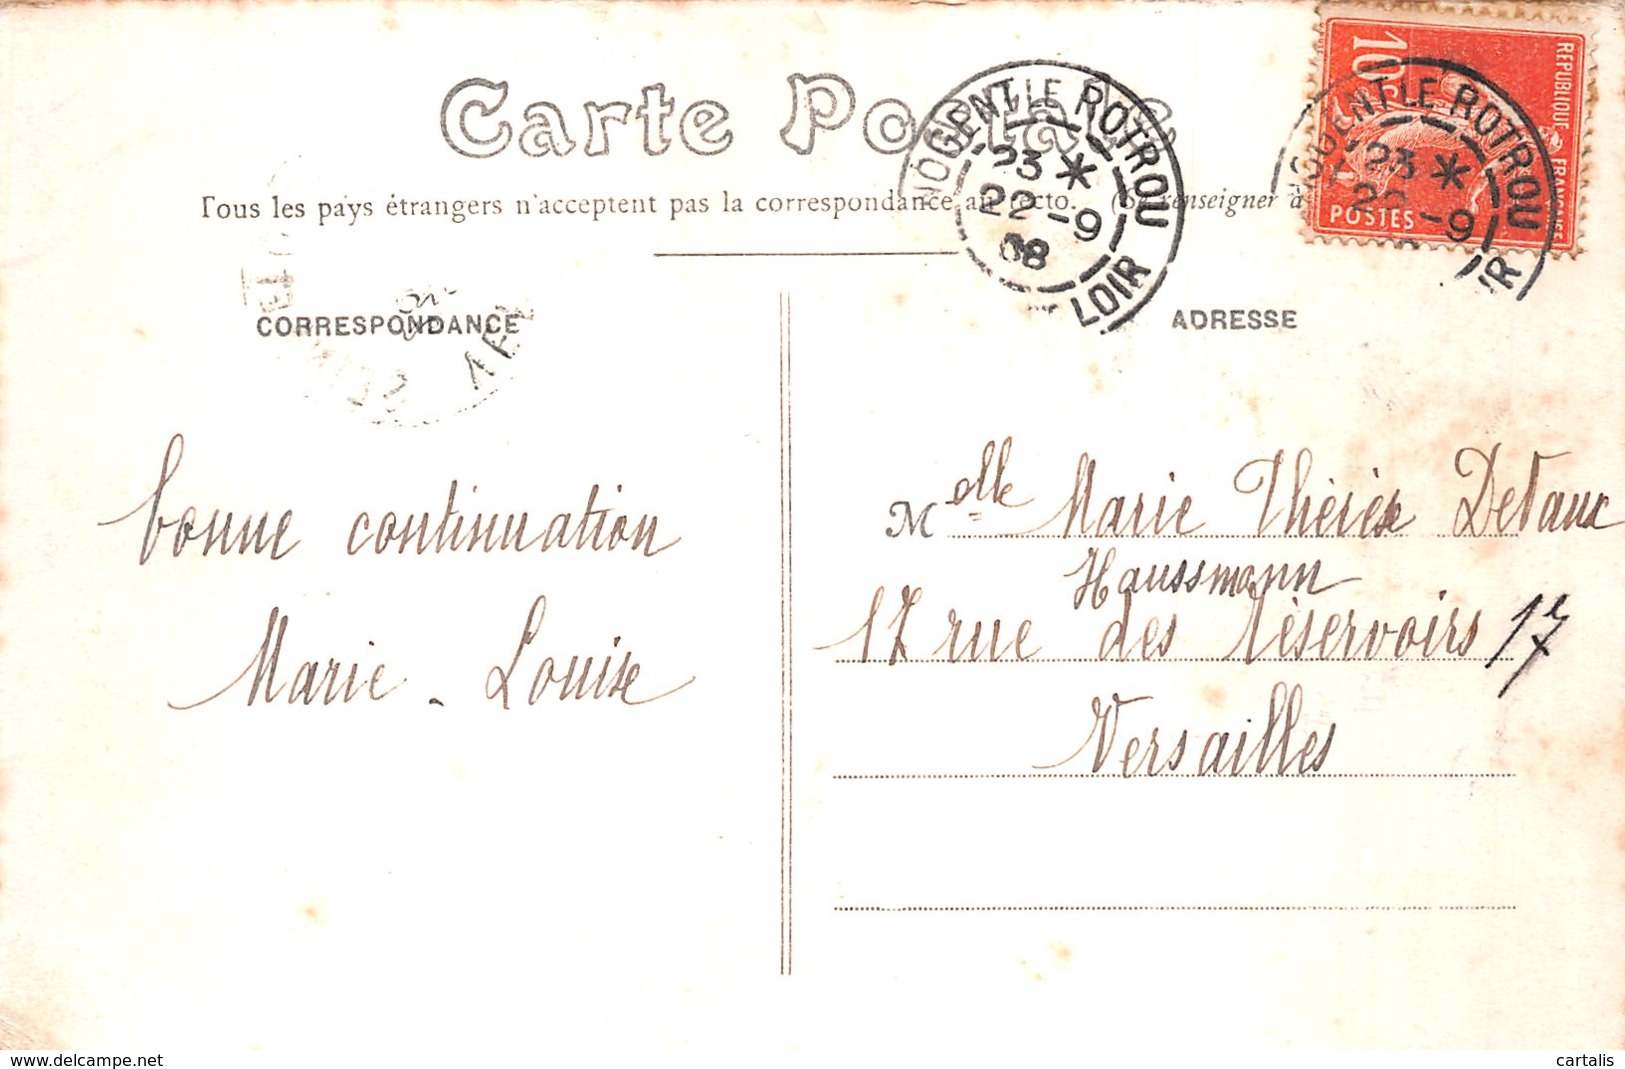 Carte Postale
Tous les pays étrangers n'acceptent pas la correspondance au recto. (Se renseigner à
NOGENT LE ROTROU
23 *
22 -9
08
LOIR
NOGENT LE ROTROU
23 *
22 -9
IR
10c
REPUBLIQUE FRANÇAISE
POSTES
CORRESPONDANCE
ADRESSE
bonne continuation
Marie-Louise
Melle Marie Thérèse
Haussmann
17 rue des réservoirs 17
Versailles
www.delcampe.net
cartalis